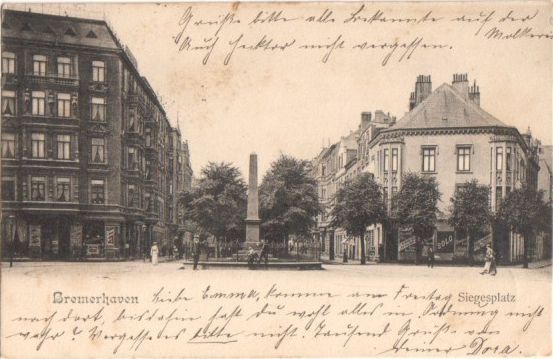 Grüße bitte alle Bekannte auf der Molkerei
Auch Hektor nicht vergessen.
GOLD
Bremerhaven
Siegesplatz
Liebe Emma, komme am Freitag
nach dort, bis dahin hast du wohl alles in Ordnung nicht
wahr? Vergesse es bitte nicht. Tausend Grüße von
deiner Dora.